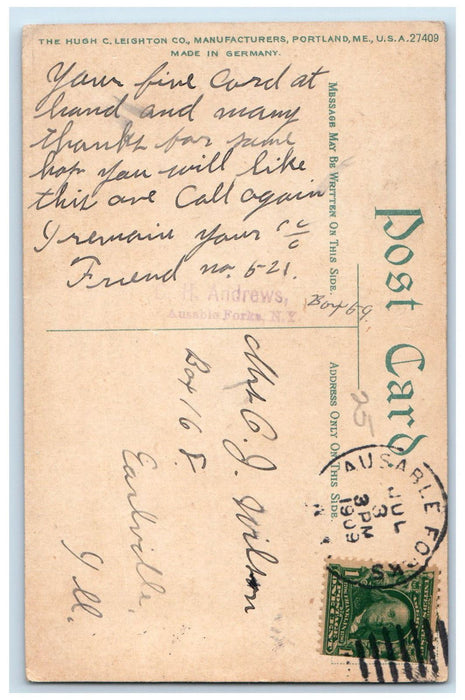 THE HUGH C. LEIGHTON CO., MANUFACTURERS, PORTLAND, ME., U.S.A. 27409
MADE IN GERMANY.
Your fine Card at
hand and many
thanks for same
hop you will like
this one Call again
I remain your
Friend no. 521.
H. Andrews,
Ausable Forks, N.Y.
Box 69.
MESSAGE MAY BE WRITTEN ON THIS SIDE.
Post Card
ADDRESS ONLY ON THIS SIDE.
25
C. J. Wilson
Box 168.
Earlville,
Ill.
AUSABLE FORKS
JUL
3
3 PM
1909
N